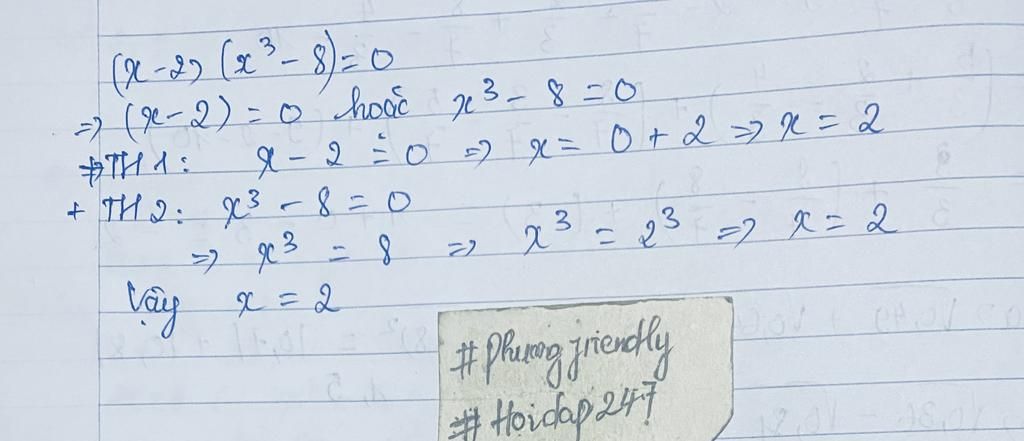 (x-2) (x³ - 8) = 0
=> (x-2) = 0 hoặc x³ - 8 = 0
+ TH1: x - 2 = 0 => x = 0 + 2 => x = 2
+ TH2: x³ - 8 = 0
=> x³ = 8 => x³ = 2³ => x = 2
Vậy x = 2
# Phuong friendly
# Hoidap247